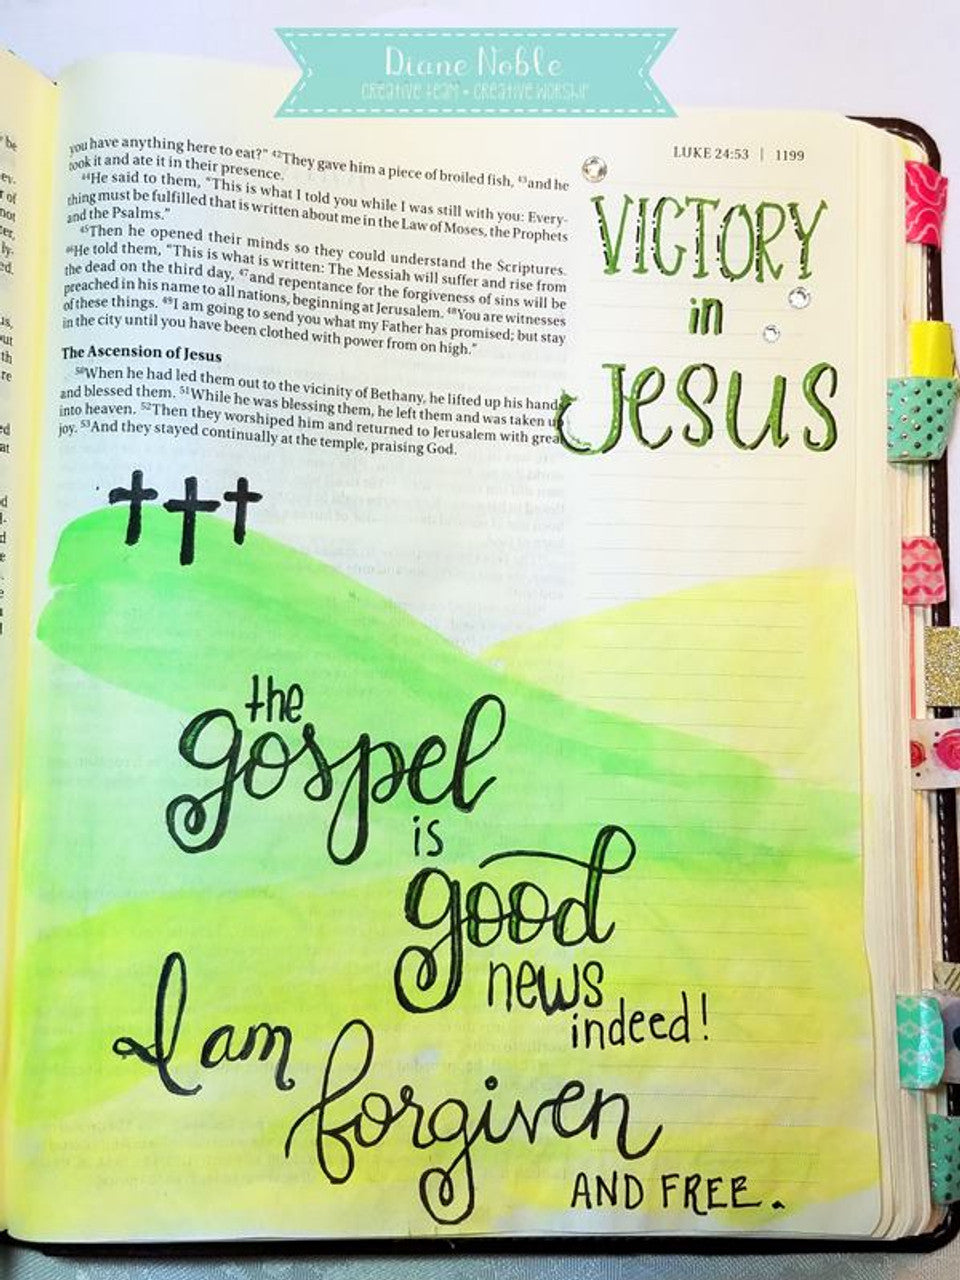 Diane Noble
creative team • creative worship
LUKE 24:53 | 1199
you have anything here to eat?” ⁴²They gave him a piece of broiled fish, ⁴³and he
took it and ate it in their presence.
⁴⁴He said to them, “This is what I told you while I was still with you: Every-
thing must be fulfilled that is written about me in the Law of Moses, the Prophets
and the Psalms.”
⁴⁵Then he opened their minds so they could understand the Scriptures.
⁴⁶He told them, “This is what is written: The Messiah will suffer and rise from
the dead on the third day, ⁴⁷and repentance for the forgiveness of sins will be
preached in his name to all nations, beginning at Jerusalem. ⁴⁸You are witnesses
of these things. ⁴⁹I am going to send you what my Father has promised; but stay
in the city until you have been clothed with power from on high.”
The Ascension of Jesus
⁵⁰When he had led them out to the vicinity of Bethany, he lifted up his hands
and blessed them. ⁵¹While he was blessing them, he left them and was taken up
into heaven. ⁵²Then they worshiped him and returned to Jerusalem with great
joy. ⁵³And they stayed continually at the temple, praising God.
VICTORY
in
Jesus
the
gospel
is
good
news
indeed!
I am
forgiven
AND FREE.